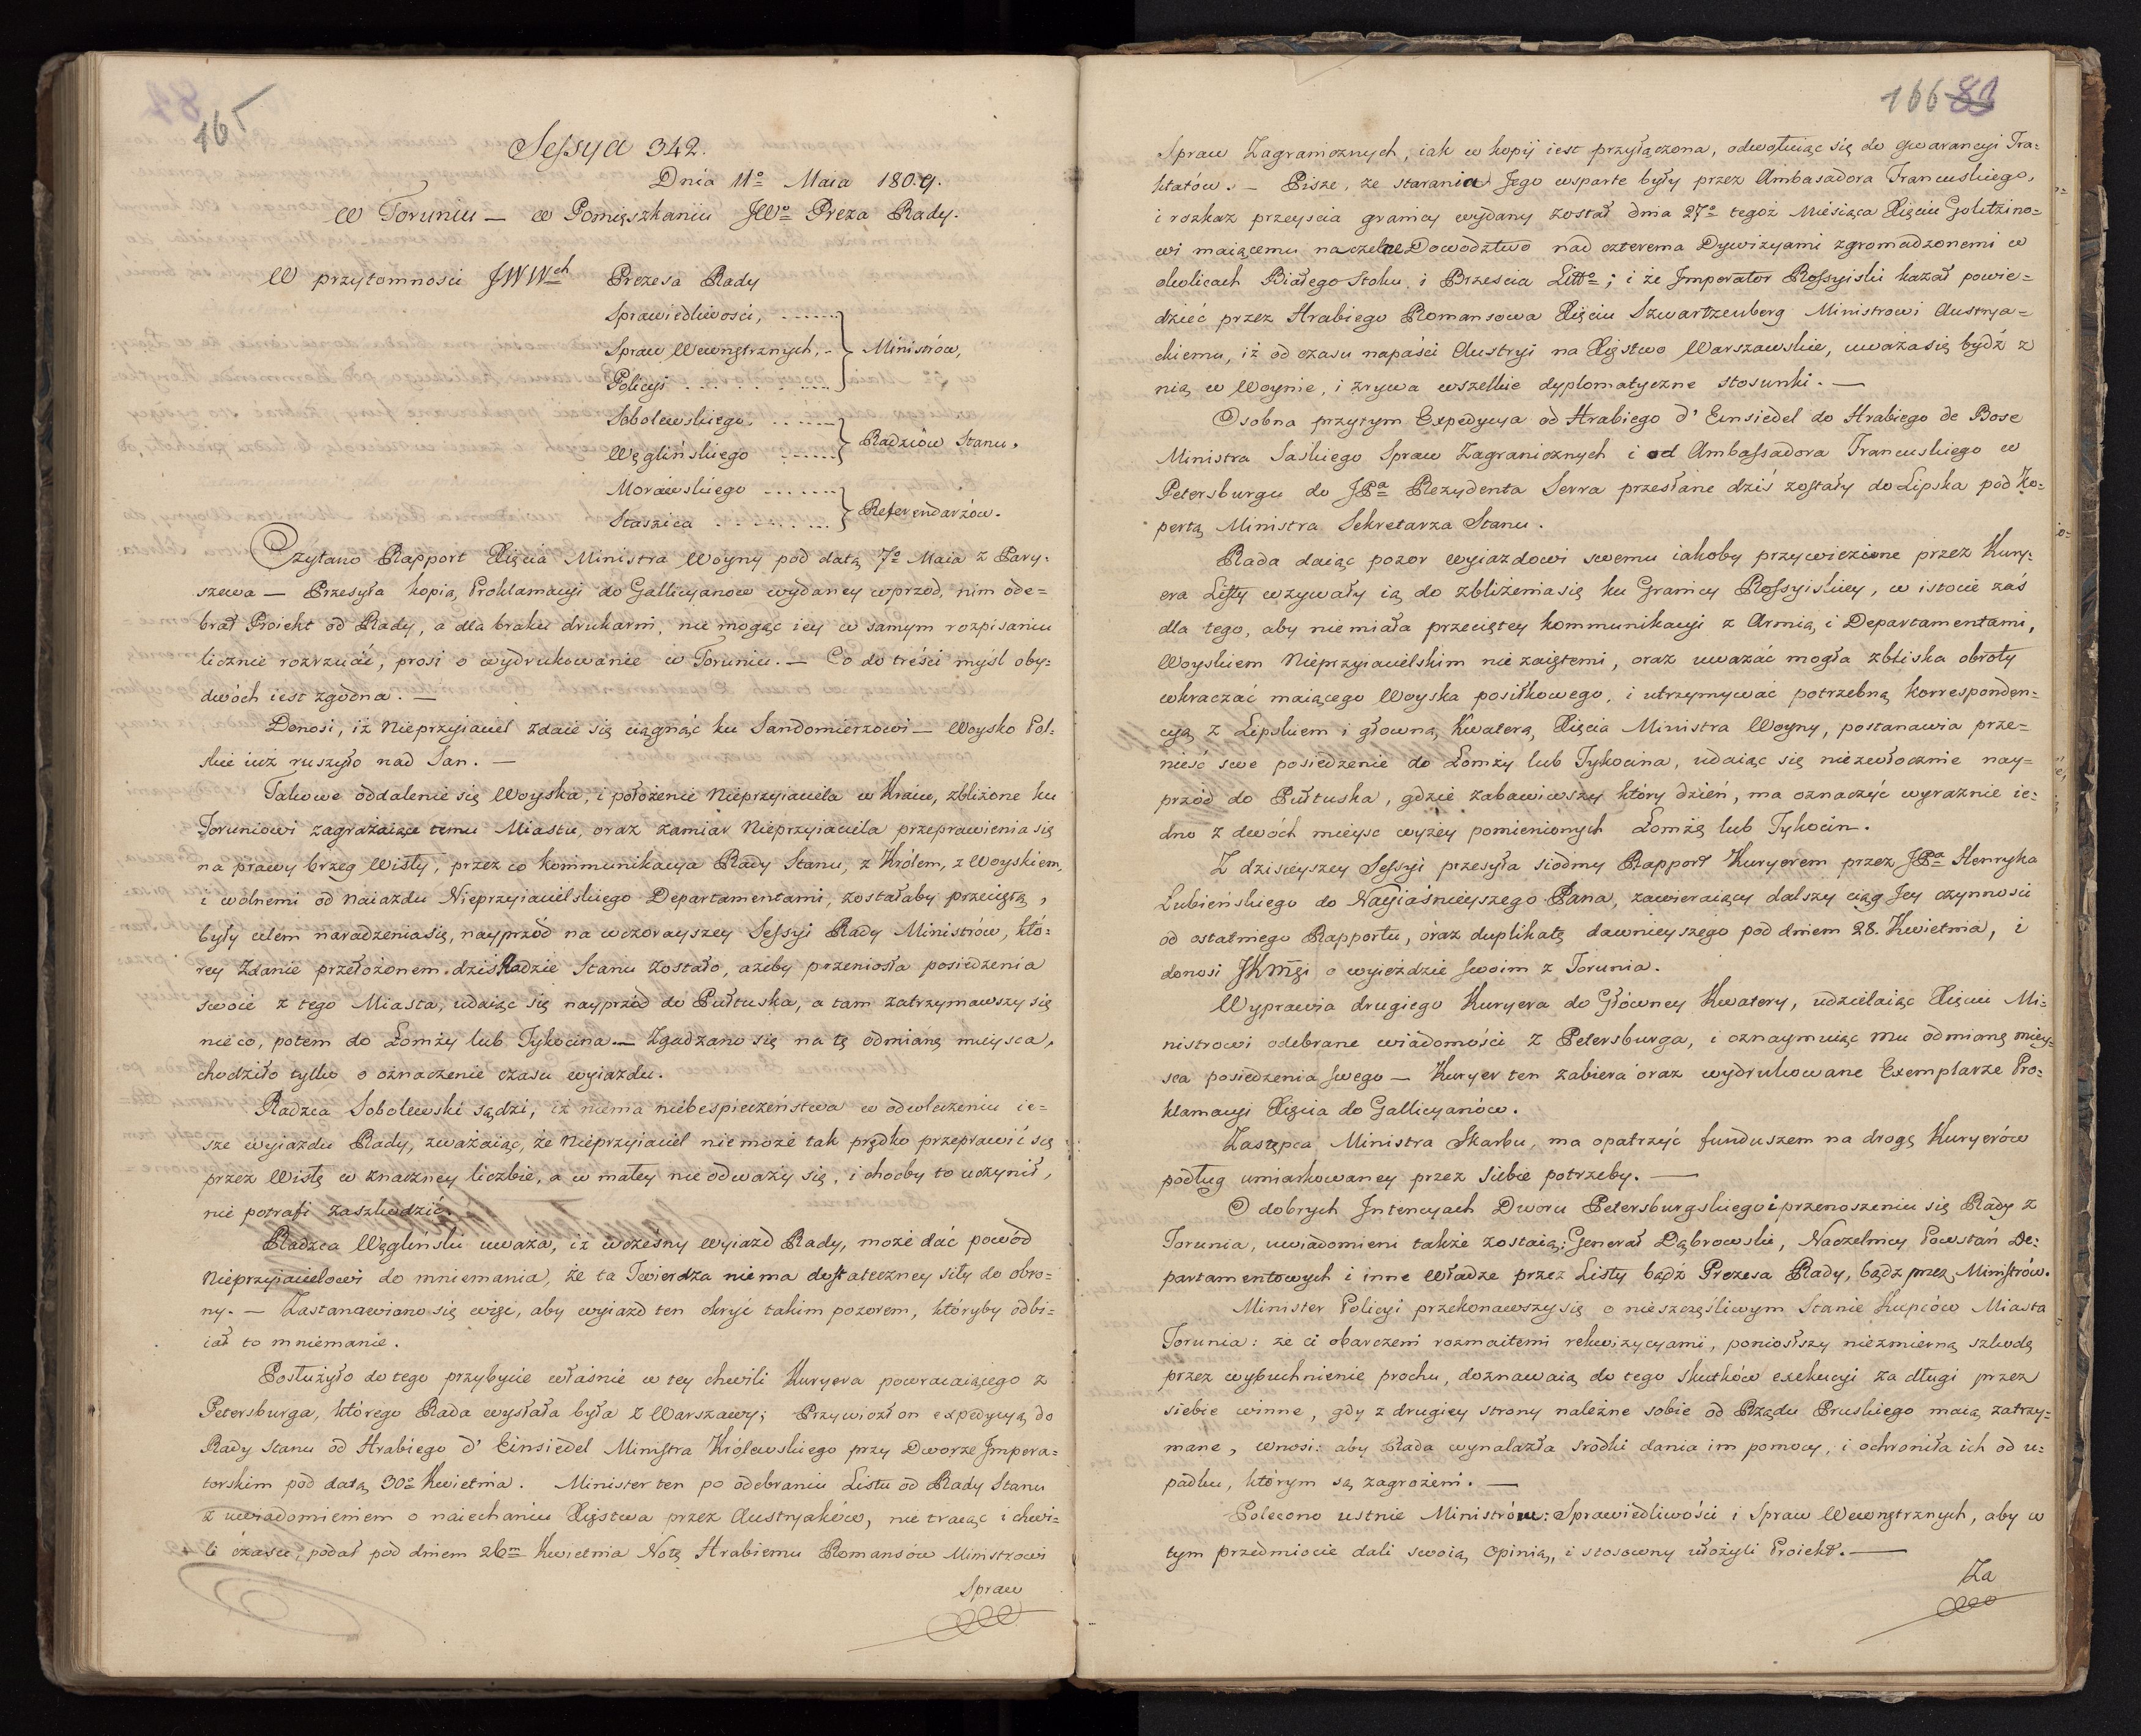 165
Sessya 342.
Dnia 11º Maia 1809.
W Toruniu — w Pomięszkaniu JWº Preza Rady.
W przytomnosci JWWch Prezesa Rady
Sprawiedliwości, ......
Spraw Wewnętrznych, .. Ministrów,
Policyi ...........
Sobolewskiego. ......
Węglińskiego ...... Radzców Stanu.
Morawskiego .......
Staszica .......... Referendarzów.
Czytano Rapport Xięcia Ministra Woyny pod datą 7º Maia z Pary-
szewa — Przesyła kopią Proklamacyi do Gallicyanow wydaney wprzod, nim ode=
brał Proiekt od Rady, a dla braku drukarni, nie mogąc iey w samym rozpisaniu
licznie rozrzucić, prosi o wydrukowanie w Toruniu. — Co do treści myśl oby=
dwóch iest zgodna. —
Donosi, iż Nieprzyiaciel zdaie się ciągnąć ku Sandomierzowi — Woysko Pol=
skie iuż ruszyło nad San. —
Takowe oddalenie się Woyska, i położenie Nieprzyiaciela w Kraiu, zbliżone ku
Toruniowi zagrażaiące temu Miastu, oraz zamiar Nieprzyiaciela przeprawienia się
na prawy brzeg Wisły, przez co kommunikacya Rady Stanu, z Królem, z Woyskiem,
i wolnemi od naiazdu Nieprzyiacielskiego Departamentami, zostałaby przeciętą,
były celem naradzenia się, nayprzód na wczorayszey Sessyi Rady Ministrów, któ=
rey Zdanie przełożonem dziś Radzie Stanu zostało, ażeby przeniosła posiedzenia
swoie z tego Miasta, udaiąc się nayprzód do Pułtuska, a tam zatrzymawszy się
nieco, potem do Łomży lub Tykocina — Zgadzano się na tę odmianę mieysca,
chodziło tylko o oznaczenie czasu wyiazdu.
Radzca Sobolewski sądzi, iż niema niebespieczeństwa w odwleczeniu ie=
sze wyiazdu Rady, zważaiąc, że Nieprzyiaciel nie może tak prędko przeprawić się
przez Wisłę w znaczney liczbie, a w małey nie odważy się, i choćby to uczynił,
nie potrafi zaszkodzić.
Radzca Węgliński uważa, iż wczesny wyiazd Rady, może dać powód
Nieprzyiacielowi do mniemania, że ta Twierdza nie ma dostateczney siły do obro=
ny. — Zastanawiano się więc, aby wyiazd ten okryć takim pozorem, któryby odbi=
iał to mniemanie.
Posłużyło do tego przybycie właśnie w tey chwili Kuryera powracaiącego z
Petersburga, którego Rada wysłała była z Warszawy; Przywiozł on expedycyą do
Rady Stanu od Hrabiego d' Einsiedel Ministra Królewskiego przy Dworze Impera=
torskim pod datą 30º Kwietnia. Minister ten po odebraniu Listu od Rady Stanu
z uwiadomieniem o naiechaniu Xięstwa przez Austryaków, nie tracąc i chwi=
li czasu, podał pod dniem 26m Kwietnia Notę Hrabiemu Romansów Ministrowi
Spraw
166 83
Spraw Zagranicznych, iak w kopij iest przyłączona, odwołuiąc się do gwarancyi Tra=
ktatów. — Pisze, że starania Jego wsparte były przez Ambasadora Francuskiego,
i rozkaz przeyscia granicy wydany został dnia 27º tegoż Miesiąca Xięciu Golitzino=
wi maiącemu naczelne Dowodztwo nad czterema Dywizyami zgromadzonemi w
okolicach Białego Stoku, i Brześcia Littº; i że Imperator Rossyiski kazał powie=
dzieć przez Hrabiego Romansowa Xięciu Szwartzenberg Ministrowi Austrya=
ckiemu, iż od czasu napaści Austryi na Xięstwo Warszawskie, uważa się bydź z
nią w Woynie, i zrywa wszelkie dyplomatyczne stosunki. —
Osobna przytym Expedycya od Hrabiego d' Einsiedel do Hrabiego de Bose
Ministra Saskiego Spraw Zagranicznych i od Ambassadora Francuskiego w
Petersburgu do JPa Rezydenta Serra przesłane dziś zostały do Lipska pod Ko-
pertą Ministra Sekretarza Stanu.
Rada daiąc pozor wyiazdowi swemu iakoby przywiezione przez Kury-
era Listy wzywały ią do zbliżenia się ku Granicy Rossyiskiey, w istocie zaś
dla tego, aby nie miała przeciętey kommunikacyi z Armią, i Departamentami,
Woyskiem Nieprzyiacielskim nie zaiętemi, oraz uważać mogła zbliska obroty
wkraczać maiącego Woyska posiłkowego, i utrzymywać potrzebną korresponden=
cyą z Lipskiem i główną Kwaterą Xięcia Ministra Woyny, postanawia prze=
nieść swe posiedzenie do Łomży lub Tykocina, udaiąc się niezwłocznie nay=
przód do Pułtuska, gdzie zabawiwszy który dzień, ma oznaczyć wyraznie ie=
dno z dwóch mieysc wyżey pomienionych Łomżę lub Tykocin.
Z dzisieyszey Sessyi przesyła siodmy Rapport Kuryerem przez JPa Henryka
Lubieńskiego do Nayiaśnieyszego Pana, zawieraiący dalszy ciąg Jey czynnosci
od ostatniego Rapportu, oraz duplikatę dawnieyszego pod dniem 28. Kwietnia, i
donosi JKMci o wyieździe swoim z Torunia.
Wyprawia drugiego Kuryera do Główney Kwatery, udzielaiąc Xięciu Mi=
nistrowi odebrane wiadomości z Petersburga, i oznaymuiąc mu odmianę miey=
sca posiedzenia swego — Kuryer ten zabiera oraz wydrukowane Exemplarze Pro=
klamacyi Xięcia do Gallicyanów.
Zastępca Ministra Skarbu, ma opatrzyć funduszem na drogę Kuryerów
podług umiarkowaney przez siebie potrzeby. —
O dobrych Intencyach Dworu Petersburgskiego i przenoszeniu się Rady z
Torunia, uwiadomieni także zostaią: Generał Dąbrowski, Naczelnicy Powstań De=
partamentowych i inne Władze przez Listy bądź Prezesa Rady, bądź przez Ministrów.
Minister Policyi przekonawszy się o nieszczęśliwym Stanie Kupców Miasta
Torunia: że ci obarczeni rozmaitemi rekwizycyami, poniosłszy niezmierną szkodę
przez wybuchnienie prochu, doznawaią do tego skutków exekucyi za długi przez
siebie winne, gdy z drugiey strony należne sobie od Rządu Pruskiego maią zatrzy=
mane, wnosi: aby Rada wynalazła srodki dania im pomocy, i ochroniła ich od u=
padku, którym są zagrożeni. —
Polecono ustnie Ministróm: Sprawiedliwości i Spraw Wewnętrznych, aby w
tym przedmiocie dali swoią Opinią, i stosowny ułożyli Proiekt. —
Za